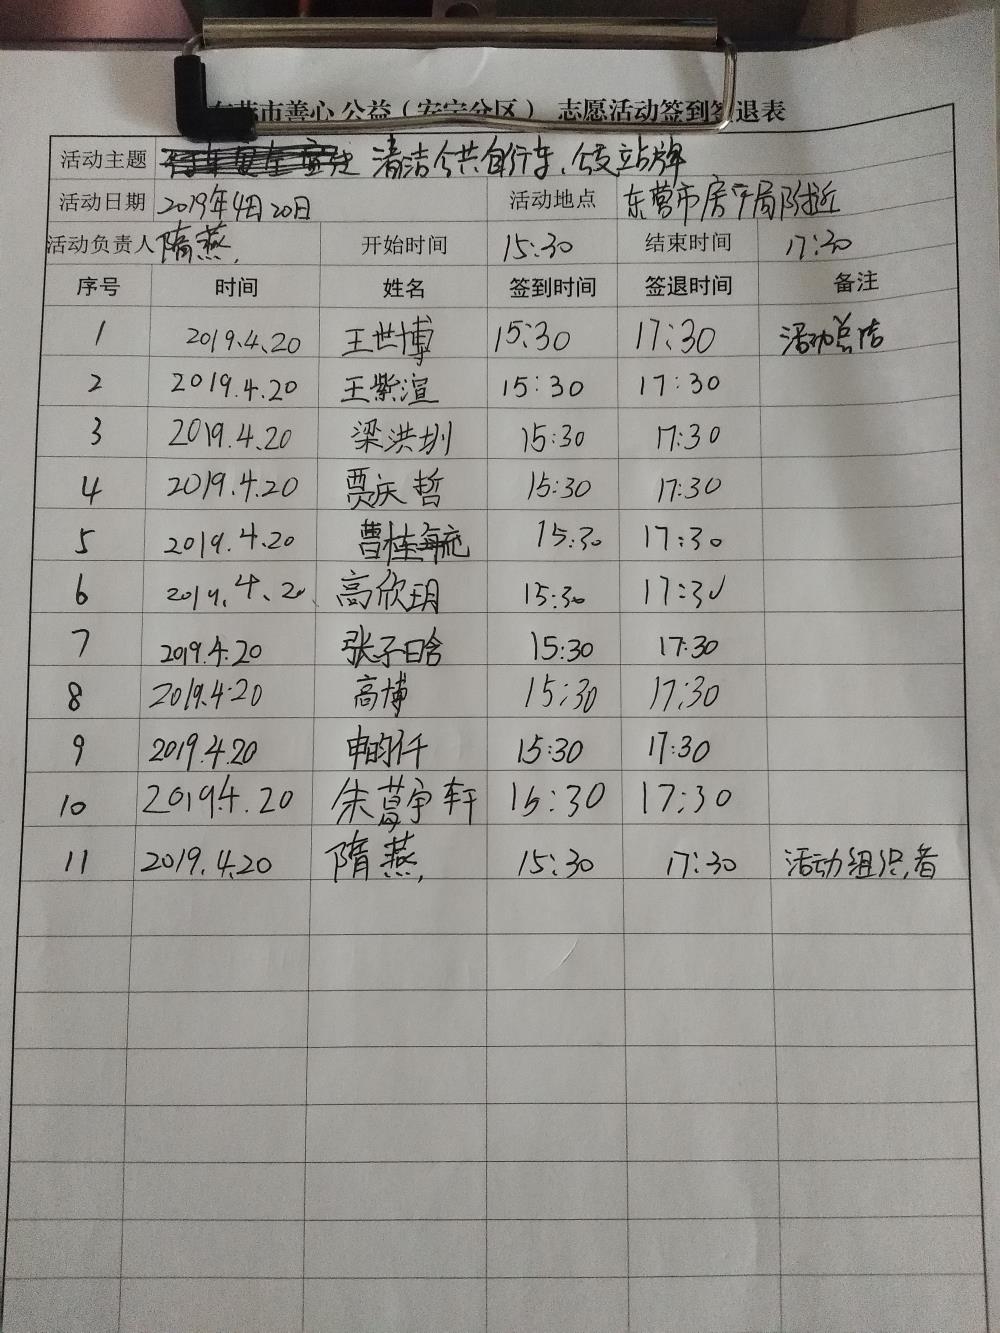 市善心 公益（安宁分区） 志愿活动签到签退表
活动主题 清洁公共自行车、公交站牌
活动日期 2019年4月20日 活动地点 东营市房产局附近
活动负责人 隋燕. 开始时间 15:30 结束时间 17:30
序号 时间 姓名 签到时间 签退时间 备注
1 2019.4.20 王世博 15:30 17:30 活动总结
2 2019.4.20 王紫渲 15:30 17:30
3 2019.4.20 梁洪圳 15:30 17:30
4 2019.4.20 贾庆哲 15:30 17:30
5 2019.4.20 曹桂毓 15:30 17:30
6 2019.4.20. 高欣玥 15:30 17:30
7 2019.4.20 张子晗 15:30 17:30
8 2019.4.20 高博 15:30 17:30
9 2019.4.20 申昀仟 15:30 17:30
10 2019.4.20 朱 轩 15:30 17:30
11 2019.4.20 隋燕. 15:30 17:30 活动组织者